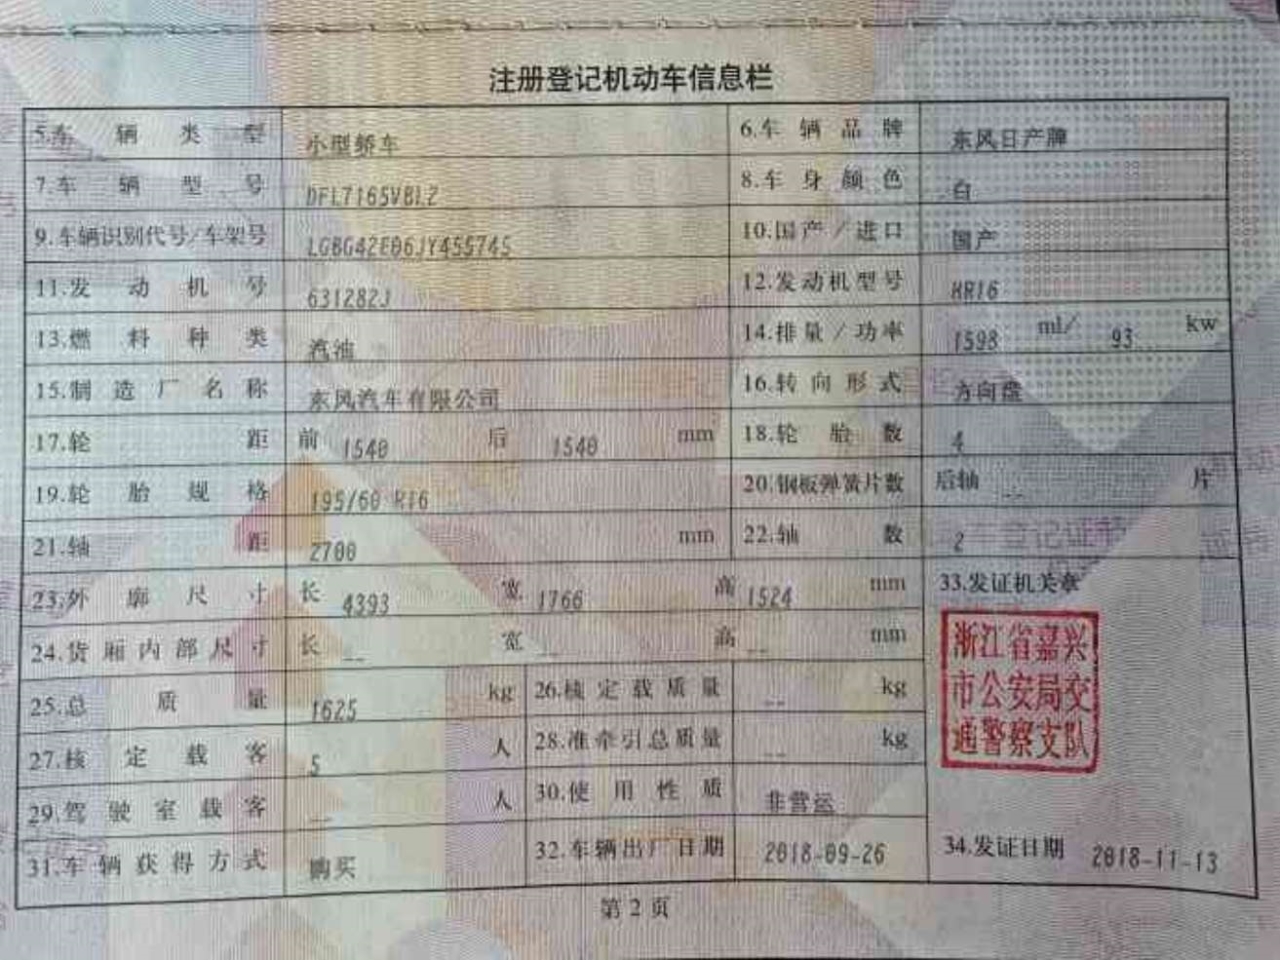 注册登记机动车信息栏
5.车辆类型 小型轿车 6.车辆品牌 东风日产牌
7.车辆型号 DFL7165VBL2 8.车身颜色 白
9.车辆识别代号/车架号 LGBG42E06JY455745 10.国产/进口 国产
11.发动机号 631282J 12.发动机型号 HR16
13.燃料种类 汽油 14.排量/功率 1598 ml/ 93 kw
15.制造厂名称 东风汽车有限公司 16.转向形式 方向盘
17.轮距 前 1540 后 1540 mm 18.轮胎数 4
19.轮胎规格 195/60 R16 20.钢板弹簧片数 后轴 -- 片
21.轴距 2700 mm 22.轴数 2
23.外廓尺寸 长 4393 宽 1766 高 1524 mm 33.发证机关章
24.货厢内部尺寸 长 -- 宽 -- 高 -- mm
浙江省嘉兴
市公安局交
通警察支队
25.总质量 1625 kg 26.核定载质量 -- kg
27.核定载客 5 人 28.准牵引总质量 -- kg
29.驾驶室载客 -- 人 30.使用性质 非营运
31.车辆获得方式 购买 32.车辆出厂日期 2018-09-26 34.发证日期 2018-11-13
第 2 页